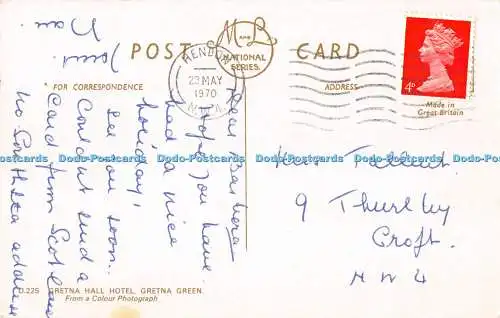 POST CARD
M and L
NATIONAL
SERIES.
FOR CORRESPONDENCE
ADDRESS
HENDON
23 MAY
1970
N.W.4
4D
Made in
Great Britain
Dear Barbara
Hope you have
had a nice
holiday,
see you soon.
Couldnt send a
Card from Scotland
no Scottish address
Love
9 Thurlby
Croft.
N W 4
D.225 GRETNA HALL HOTEL, GRETNA GREEN.
From a Colour Photograph
Dodo-Postcards Dodo-Postcards Dodo-Postcards Dodo-Postcards Dodo-Postcards